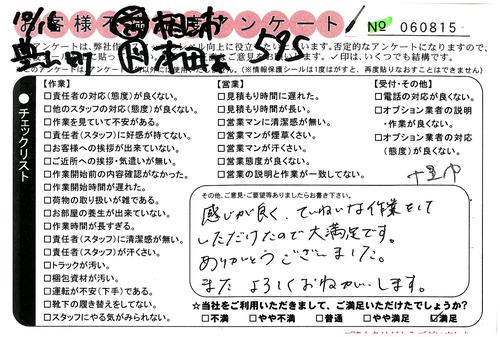 お客様不満足度アンケート
No 060815
10/16
595
このアンケートは、弊社作
ベル向上に役立
います。否定的なアンケートになりますので、
✓印は、いくつでも結構です。
(※情報保護シールは1度がすと、再度貼りなおすことはできません)
チェックリスト
【作業】
□責任者の対応(態度)が良くない。
□他のスタッフの対応(態度)が良くない。
□作業を見ていて不安がある。
□責任者(スタッフ)に好感が持てない。
□お客様への挨拶が出来ていない。
□ご近所への挨拶・気遣いが無い。
□作業開始前の内容確認がなかった。
□作業開始時間が遅れた。
□荷物の取り扱いが雑である。
□お部屋の養生が出来ていない。
□作業時間が長すぎる。
□責任者(スタッフ)に清潔感が無い。
□責任者(スタッフ)が汗くさい。
□トラックが汚い。
□梱包資材が汚い。
□運転が不安(下手)である。
□靴下の履き替えをしてない。
□スタッフにやる気がみられない。
【営業】
□見積もり時間に遅れた。
□見積もり時間が長い。
□営業マンに清潔感が無い。
□営業マンが煙草くさい。
□営業マンが汗くさい。
□営業態度が良くない。
□営業の説明と作業が一致してない。
【受付・その他】
□電話の対応が良くない。
□オプション業者の説明
・作業が良くない。
□オプション業者の対応
(態度)が良くない。
その他、ご意見・ご要望等ありましたらお書き下さい。
感じが良く、ていねいな作業をして
いただけたので大満足です。
ありがとうございました。
また よろしくおねがいします。
☆当社をご利用いただきまして、ご満足いただけたでしょうか?
□不満 □やや不満 □普通 □やや満足 ☑満足